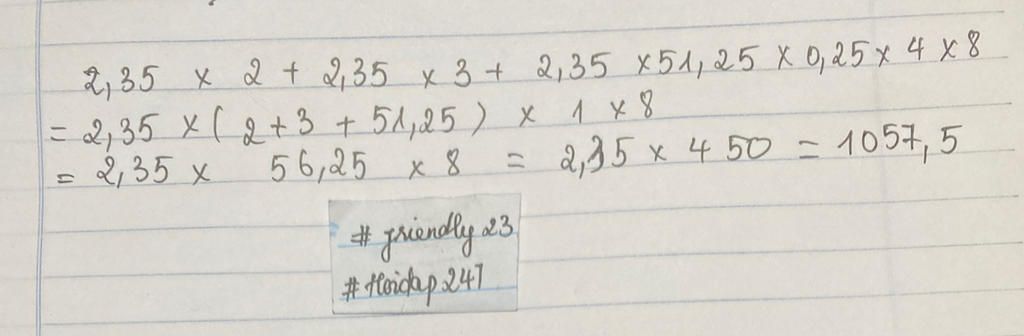 2,35 x 2 + 2,35 x 3 + 2,35 x 51,25 x 0,25 x 4 x 8
= 2,35 x ( 2 + 3 + 51,25 ) x 1 x 8
= 2,35 x 56,25 x 8 = 2,35 x 450 = 1057,5
# friendly 23
# Hoidap 247